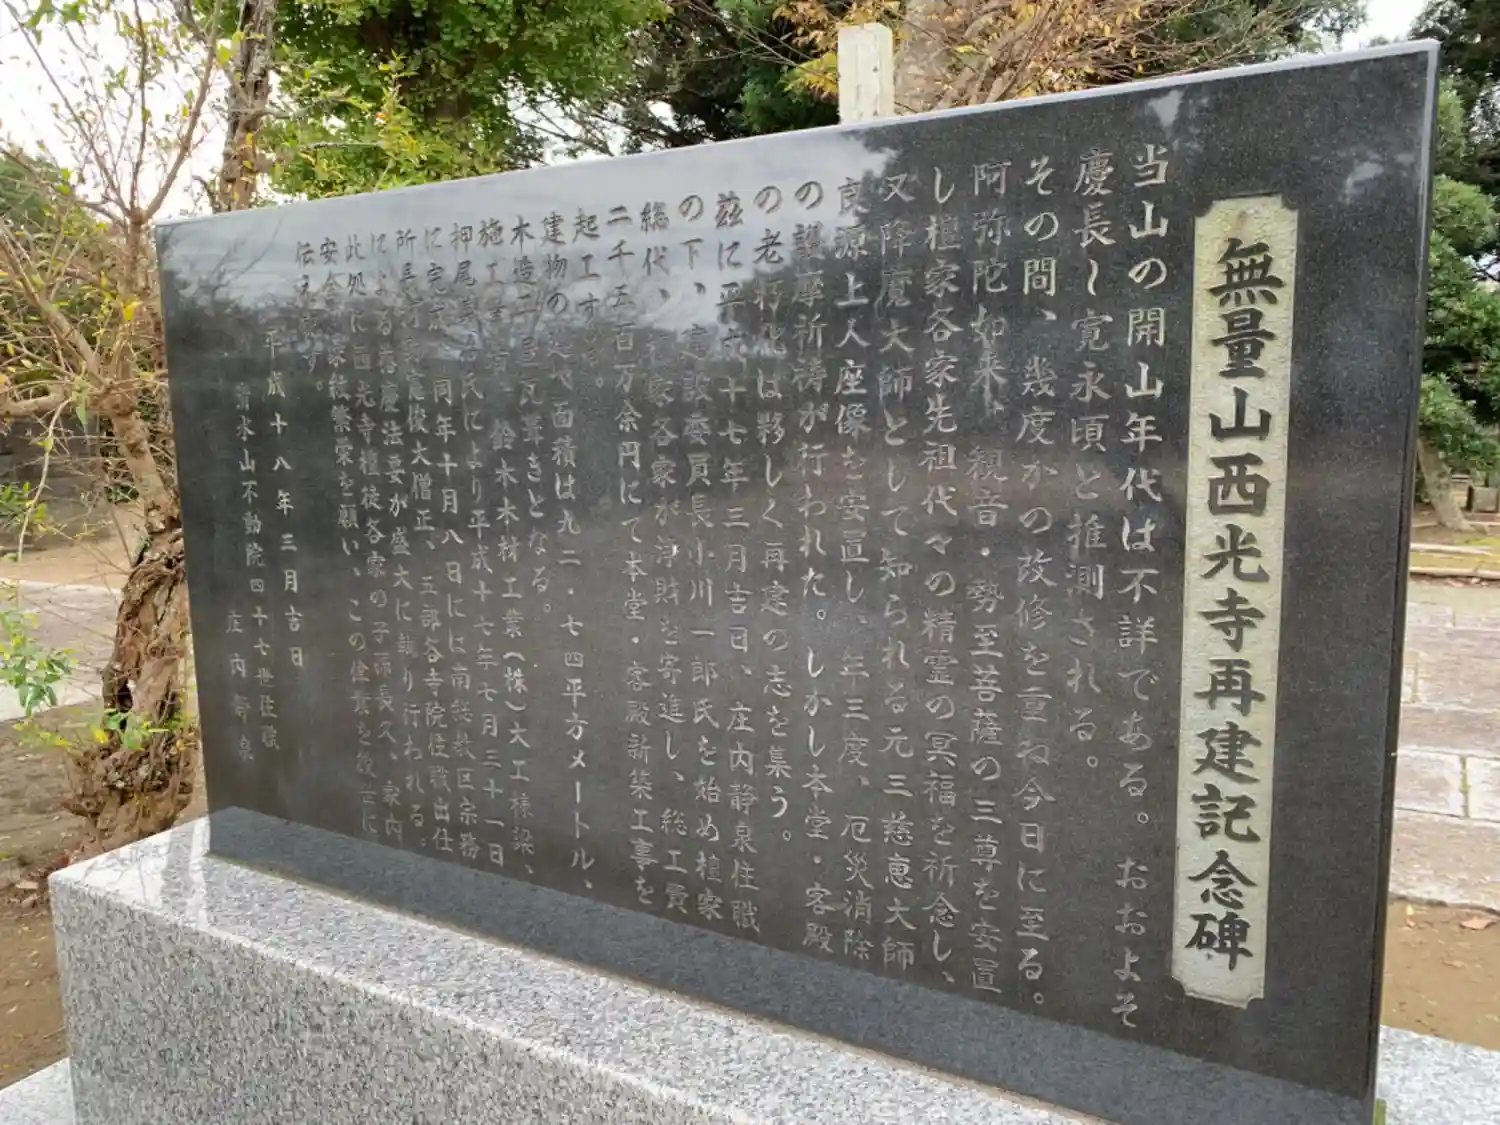 無量山西光寺再建記念碑
当山の開山年代は不詳である。おおよそ
慶長〜寛永頃と推測される。
その間、幾度かの改修を重ね今日に至る。
阿弥陀如来、観音・勢至菩薩の三尊を安置
し檀家各家先祖代々の精霊の冥福を祈念し、
又降魔大師として知られる元三慈恵大師
良源上人座像を安置し、年三度、厄災消除
の護摩祈祷が行われた。しかし本堂・客殿
の老朽化は夥しく再建の志を集う。
茲に平成十七年三月吉日、庄内静泉住職
の下、建設委員長小川一郎氏を始め檀家
総代、檀家各家が浄財を寄進し、総工費
二千五百万余円にて本堂・客殿新築工事を
起工す。
建物の延べ面積は九二・七四平方メートル、
木造二 瓦葺きとなる。
施工 鈴木木材工業(株)大工棟梁、
押尾 氏により平成十七年七月三十一日
に完 同年十月八日には南総教区宗務
所長 俊大僧正、五部各寺院住職出仕
による落慶法要が盛大に執り行われる。
此処に西光寺檀徒各家の子孫長久、家内
安全 家紋繁栄を願い、この偉業を後世に
伝え す。
平成十八年三月吉日
清水山不動院四十七世住職
庄内静泉